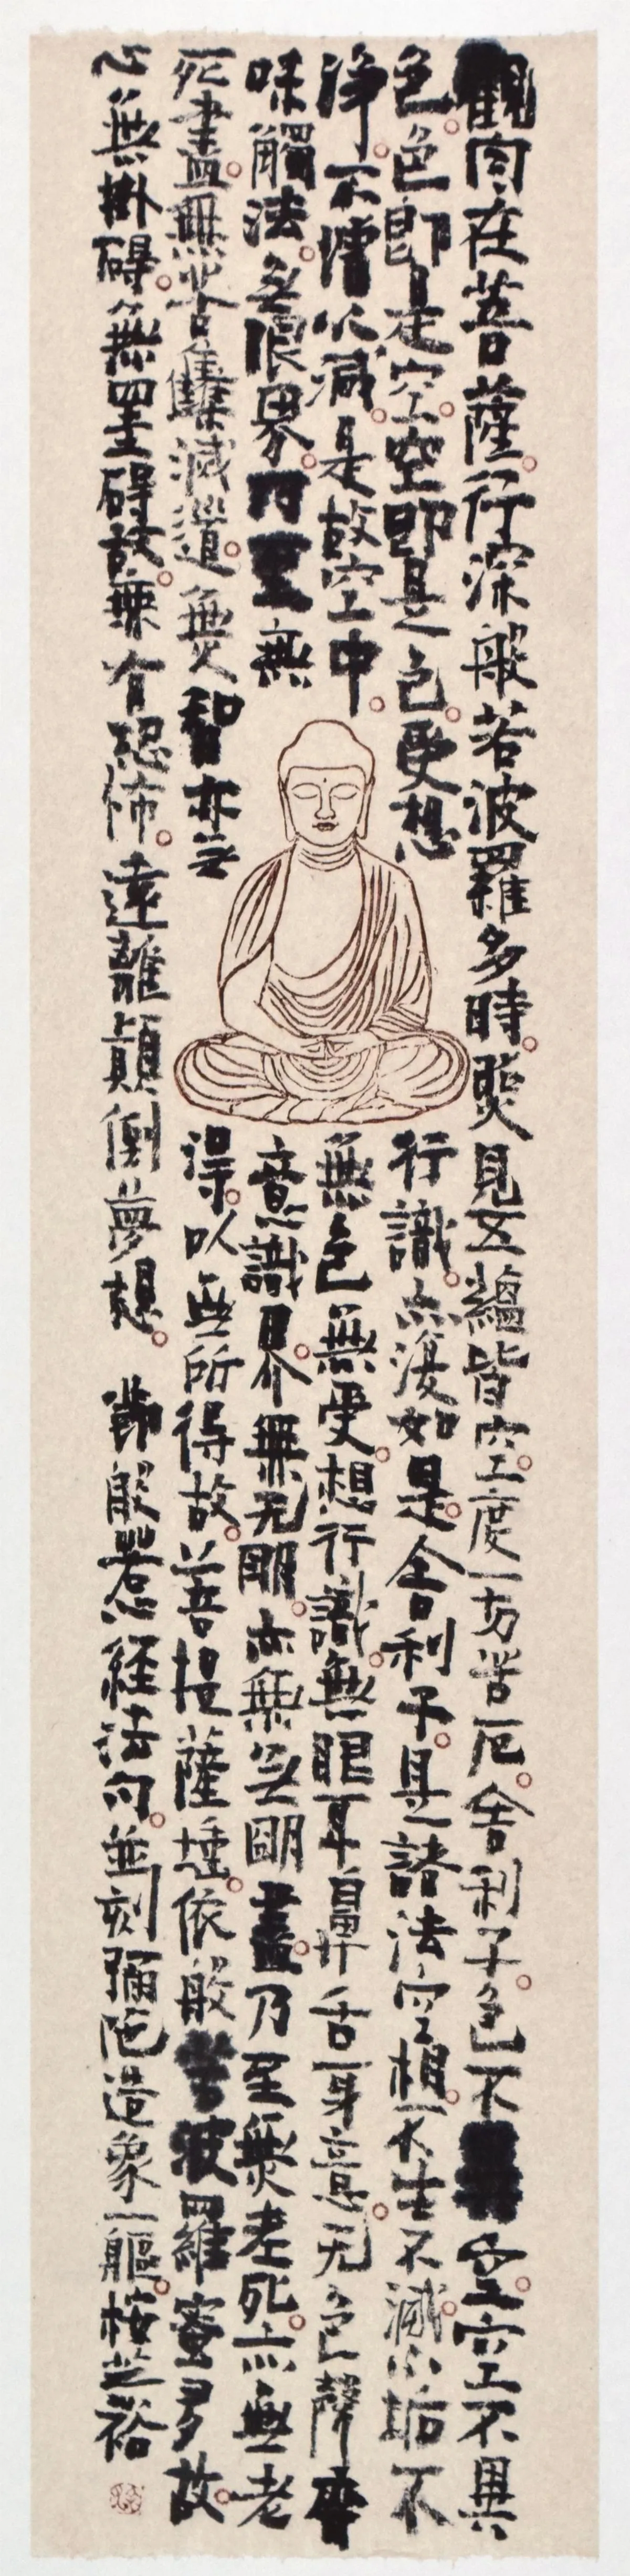 觀自在菩薩行深般若波羅多時照見五蘊皆空度一切苦厄舍利子色不異空空不異
色色即是空空即是色受想行識亦復如是舍利子是諸法空相不生不滅不垢不
淨不增不減是故空中無色無受想行識無眼耳鼻舌身意无色聲香
味觸法無眼界乃至無意識界無无明亦無無明盡乃至無老死亦無老
死盡無苦集滅道無智亦無得以無所得故菩提薩埵依般若波羅蜜多故
心無掛礙無罣礙故無有恐怖遠離顛倒夢想 節般惹經法句並刻彌陀造象一軀